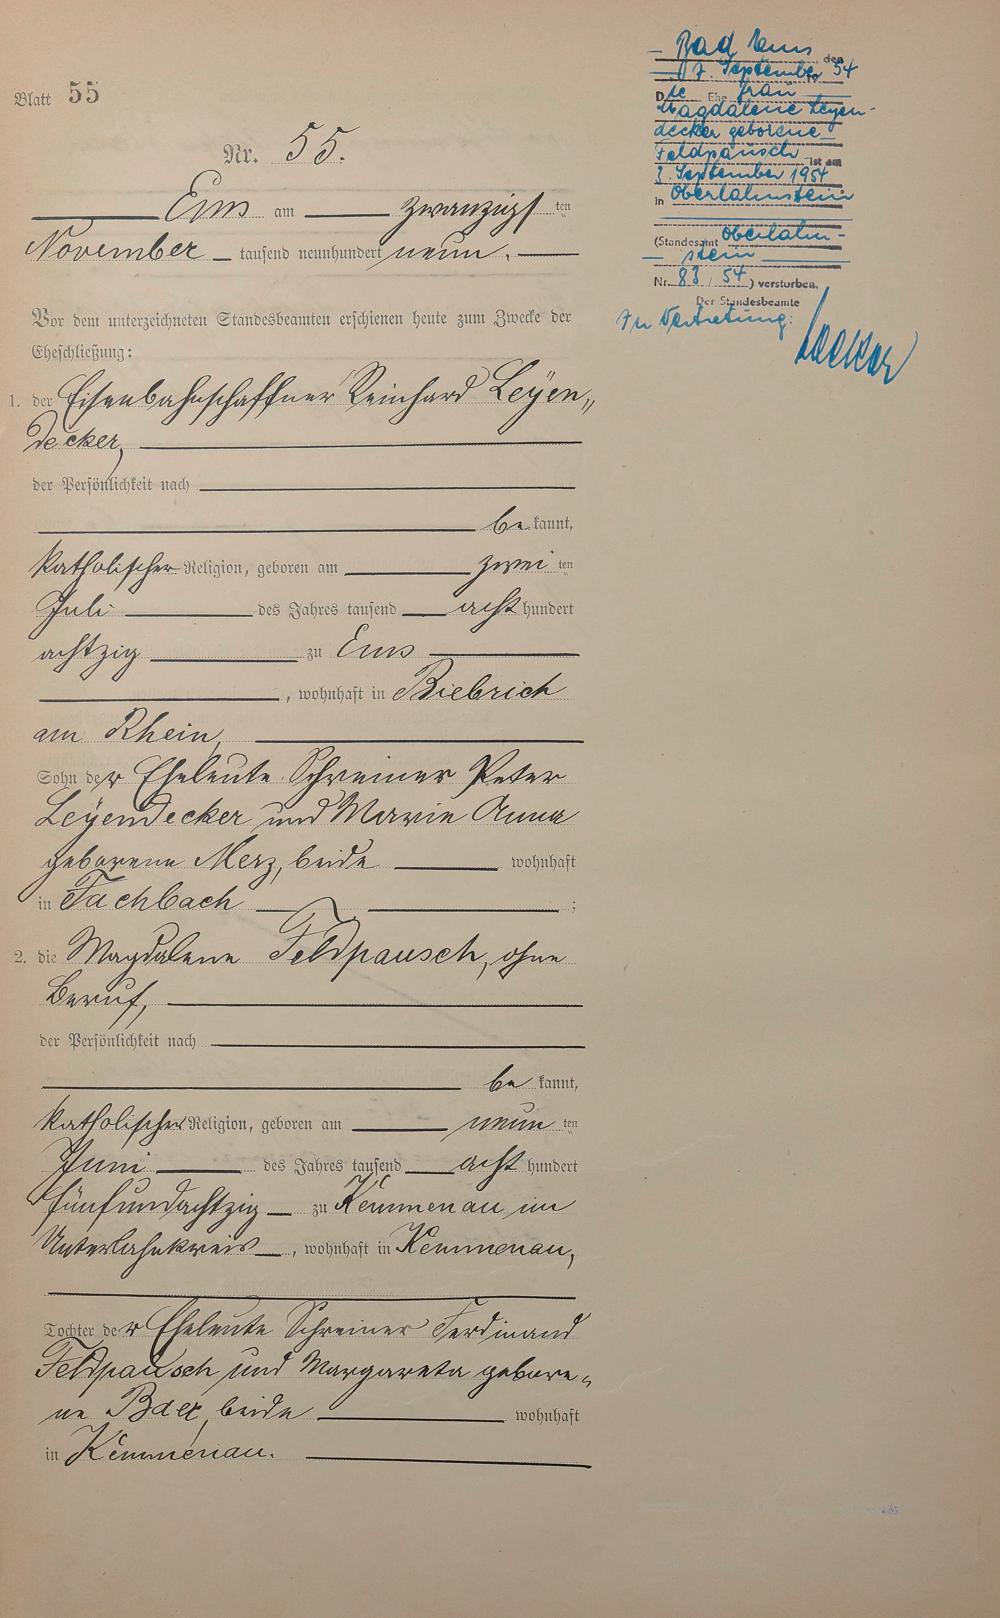 Blatt 55
Nr. 55.
Ems am zwanzigsten
November tausend neunhundert neun.
Vor dem unterzeichneten Standesbeamten erschienen heute zum Zwecke der
Eheschließung:
1. der Eisenbahnschaffner Reinhard Leyen„
decker,
der Persönlichkeit nach
bekannt,
katholischer Religion, geboren am zweiten
Juli des Jahres tausend achthundert
achtzig zu Ems
, wohnhaft in Biebrich
am Rhein,
Sohn der Eheleute Schreiner Peter
Leyendecker und Marie Anna
geborene Merz, beide wohnhaft
in Fachbach ;
2. die Magdalena Feldpausch, ohne
Beruf,
der Persönlichkeit nach
bekannt,
katholischer Religion, geboren am neunten
Juni des Jahres tausend achthundert
fünfundachtzig zu Kemmenau im
Unterlahnkreis, wohnhaft in Kemmenau,
Tochter der Eheleute Schreiner Ferdinand
Feldpausch und Margareta gebore„
ne beide wohnhaft
in Kemmenau.
Bad Ems, den
7. September 54
Die Ehefrau
Magdalene Leyen-
decker geborene
Feldpausch ist am
3. September 1954
in Oberlahnstein
(Standesamt Oberlahn-
stein
Nr. 83/54) verstorben.
Der Standesbeamte
In Vertretung: